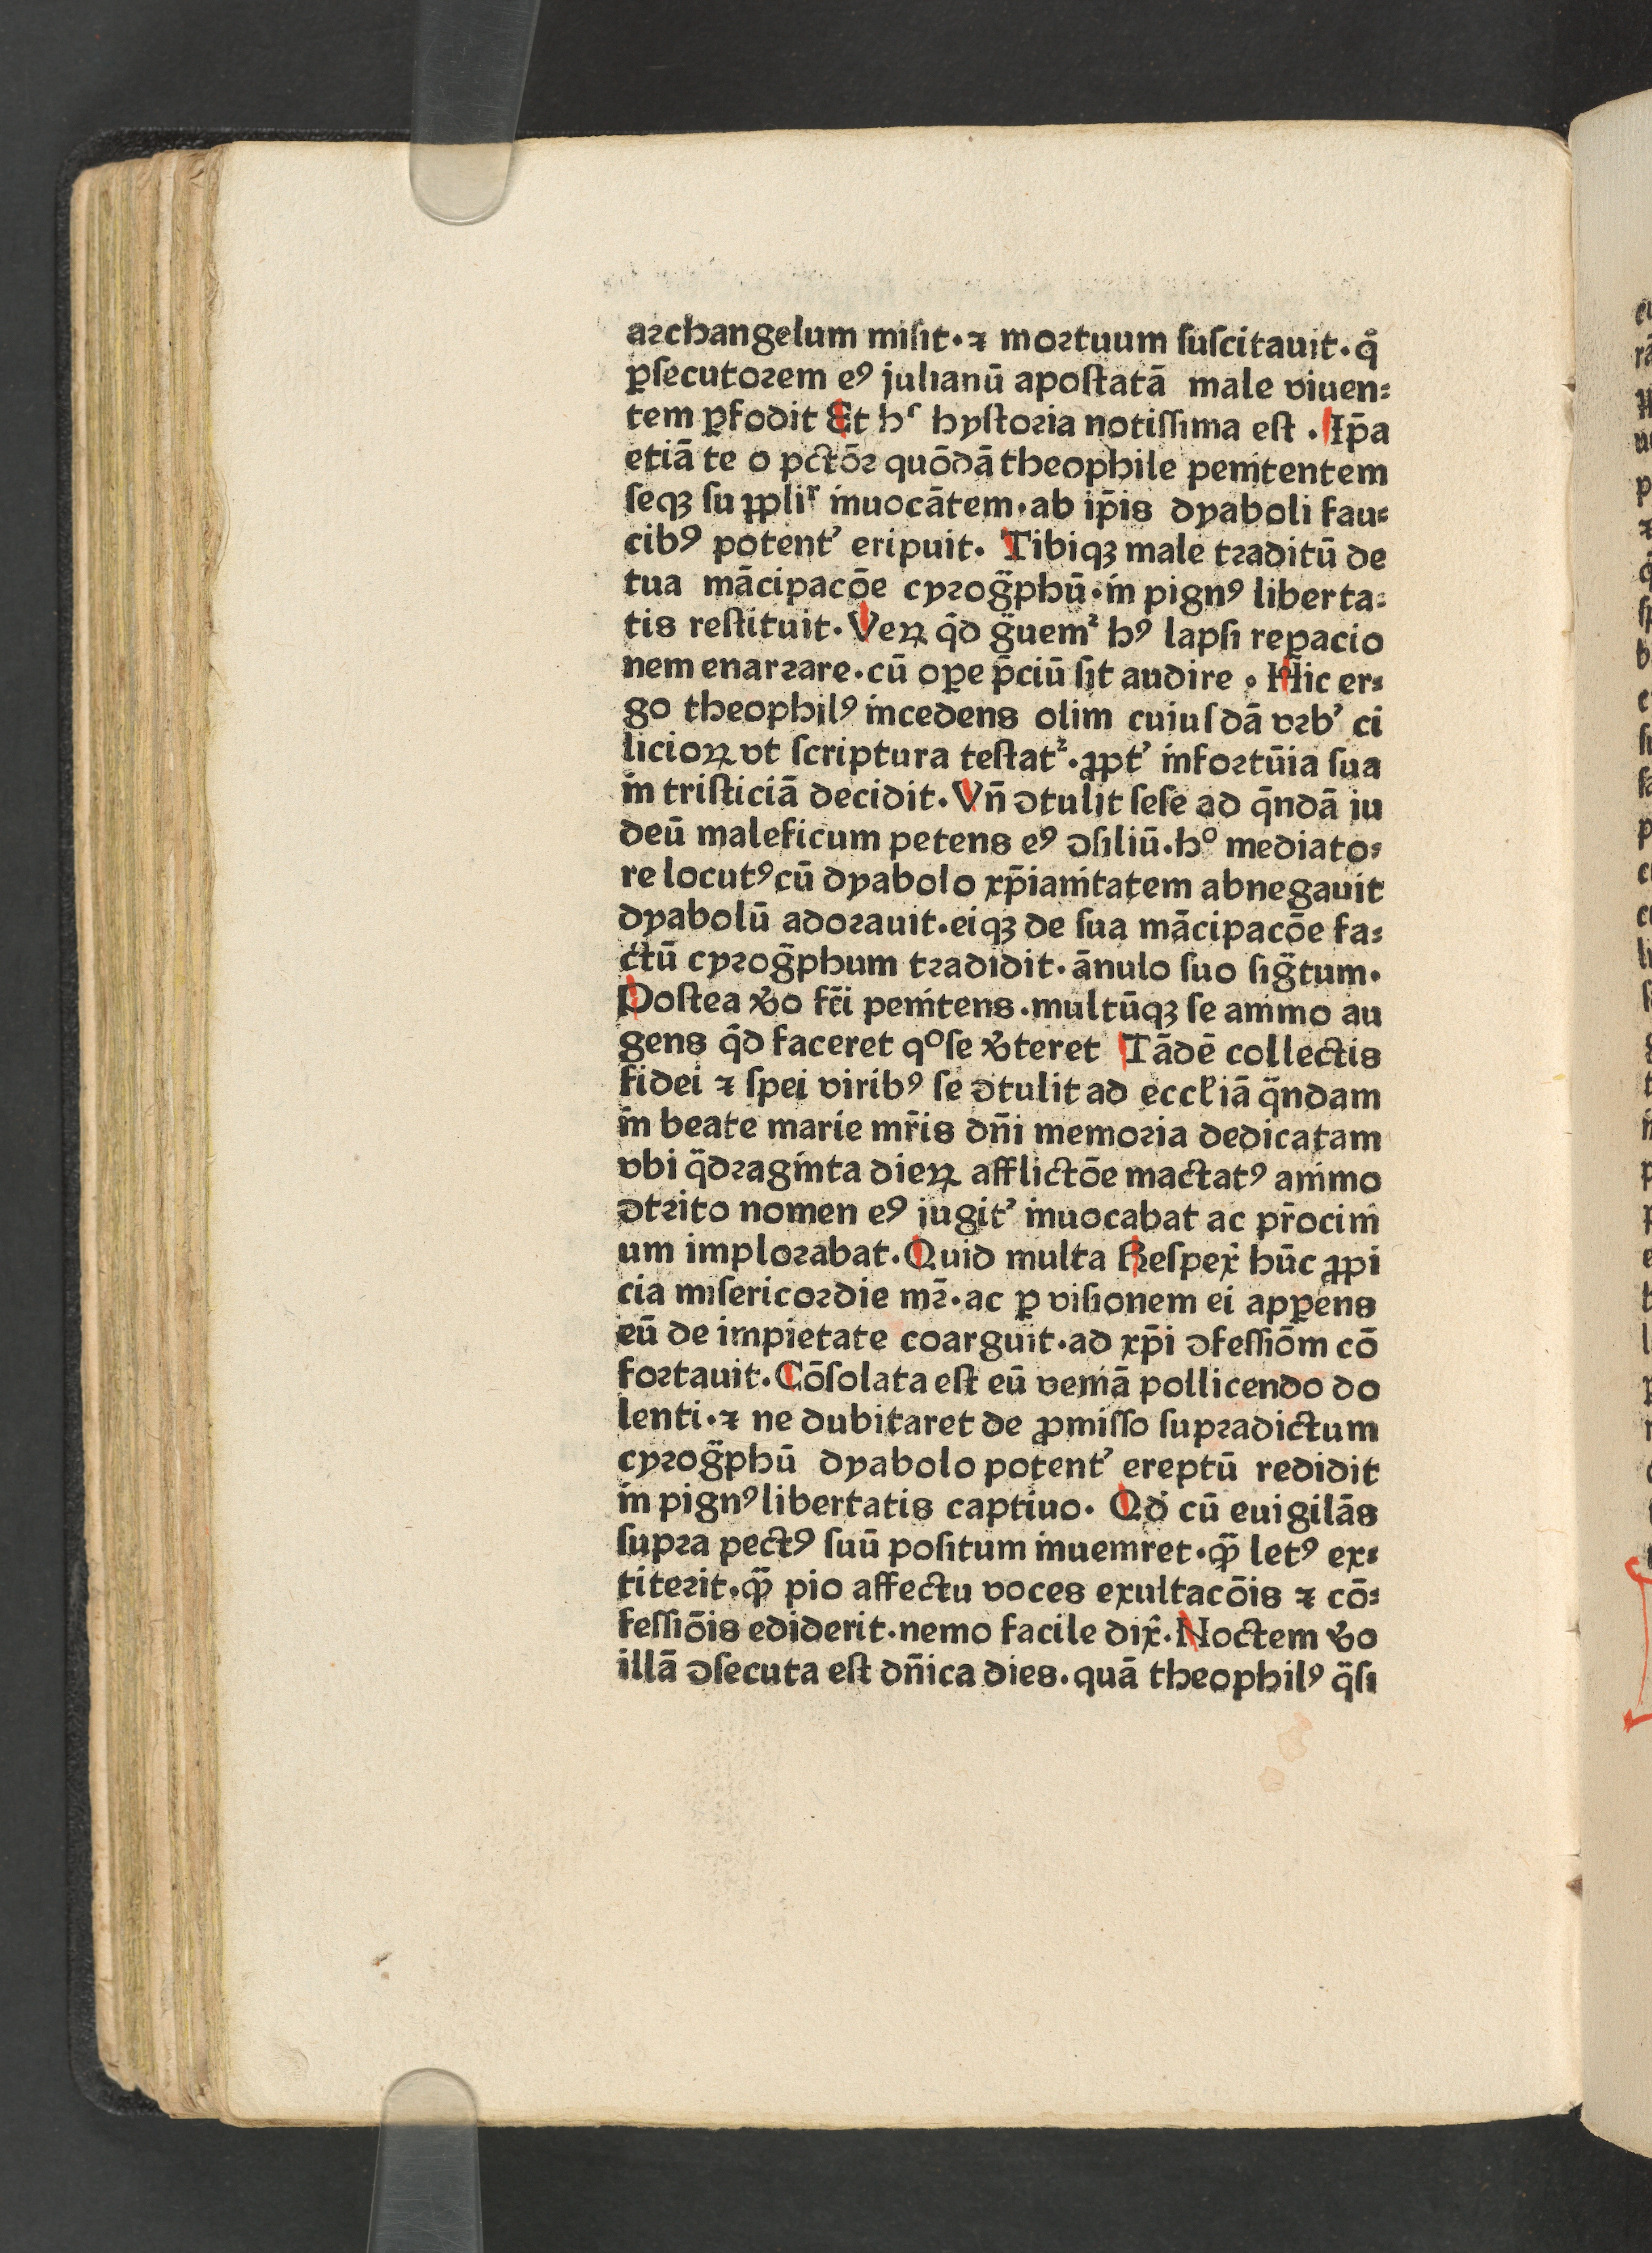 archangelum misit·⁊ mortuum ſuſcitauit·qͦ
ꝑſecutorem eꝰ julianū apoſtatā male viuen⸗
tem ꝑfodit Et hͬ hyſtoria notiſſima eſt . Ip̄a
etiā te o pctōr quōdā theophile penitentem
ſeqꝫ ſu ꝓpliͬ inuocātem·ab ip̄is dyaboli fau⸗
cibꝰ potent᾿ eripuit· Tibiqꝫ male traditū de
tua mācipacōe cyrogᷓphū·in pignꝰ liberta⸗
tis reſtituit·Veꝝ qͥd gᷓuemᷣ hꝰ lapſi reꝑacio
nem enarrare·cū oꝑe p̄ciū ſit audire . Hic er⸗
go theophilꝰ incedens olim cuiuſdā vrb᾿ ci
licioꝝ vt ſcriptura teſtatᷣ·ꝓpt᾿ infortūia ſua
in triſticiā decidit·Vn̄ ↄtulit ſeſe ad q̄ndā iu
deū maleficum petens eꝰ ↄſiliū·hͦ mediato⸗
re locutꝰ cū dyabolo xp̄ianitatem abnegauit
dyabolū adorauit·eiqꝫ de ſua mācipacōe fa⸗
ctū cyrogᷓphum tradidit·ānulo ſuo ſigᷓtum·
Poſtea v̓o fc̄i penitens·multūqꝫ ſe animo au
gens qͥd faceret qͦ ſe v̓teret Tādē collectis
fidei ⁊ ſpei viribꝰ ſe ↄtulit ad eccl̓iā qᷓndam
in beate marie mr̄is dn̄i memoria dedicatam
vbi qᷓdraginta dieꝝ afflictōe mactatꝰ animo
ↄtrito nomen eꝰ jugit᾿ inuocabat ac pr̄ocini
um implorabat·Quid multa Reſpex̓ hūc ꝓpi
cia miſericordie mr̄·ac ꝑ viſionem ei apꝑens
eū de impietate coarguit·ad xp̄i ↄfeſſiōm cō
fortauit·Cōſolata eſt eū veniā pollicendo do
lenti·⁊ ne dubitaret de ꝓmiſſo ſupradictum
cyrogᷓphū dyabolo potent᾿ ereptū redidit
in pignꝰ libertatis captiuo· Qd̓ cū euigilās
ſupra pectꝰ ſuū poſitum inueniret·qᷓꝫ letꝰ ex⸗
titerit·qᷓꝫ pio affectu voces exultacōis ⁊ cō⸗
feſſiōis ediderit·nemo facile dix̓·Noctem v̓o
illā ↄſecuta eſt dn̄ica dies·quā theophilꝰ qᷓſi